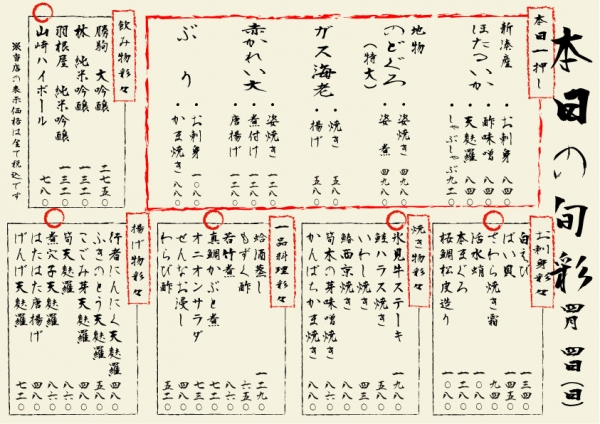 本日の旬彩 四月 四日(日)
本日一押し
新湊産
ほたるいか
・お刺身 八四〇
・酢味噌 八四〇
・天麩羅 八四〇
・しゃぶしゃぶ 九二〇
地物
のどぐろ
(特大)
・姿焼き 四九八〇
・姿煮 四九八〇
ガス海老
・焼き 五八〇
・揚げ 五八〇
赤かれい大
・姿焼き 一二八〇
・煮付け 一二八〇
・唐揚げ 一二八〇
ぶり
・お刺身 一〇八〇
・かま焼き 八八〇
飲み物彩々
勝駒 大吟醸 二七五〇
林 純米吟醸 一三二〇
羽根屋 純米吟醸 一三二〇
山崎ハイボール 七八〇
※当店の表示価格は全て税込です
お刺身彩々
白えび
ばい貝
さわら焼き霜
活水蛸
本まぐろ
桜鯛松皮造り
焼き物彩々
氷見牛ステーキ 一九八〇
鮭ハラス焼き
いわし焼き
鰆西京焼き
筍木の芽味噌焼き
かんぱちかま焼き 八八〇
一品料理彩々
蛤酒蒸し 一二九〇
もずく酢 六五〇
若竹煮 八六〇
真鯛かぶと煮
オニオンサラダ
ぜんなお浸し
わらび酢 五二〇
揚げ物彩々
行者にんにく天麩羅 四八〇
ふきのとう天麩羅
こごみ芽天麩羅 四八〇
筍天麩羅 八六〇
煮穴子天麩羅 八六〇
はたはた唐揚げ 四八〇
げんげ天麩羅 七二〇